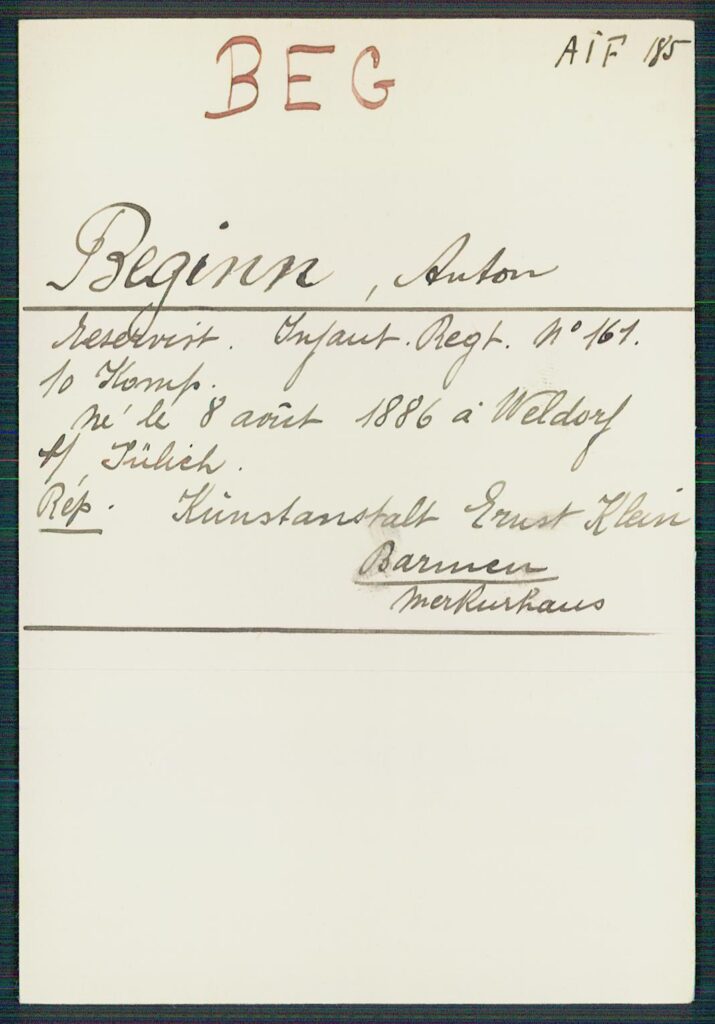 BEG
AIF 185
Beginn, Anton
Reservist. Infant. Regt. No 161.
10 Komp.
né le 8 août 1886 à Weldorf
b/ Jülich.
Rép. Kunstanstalt Ernst Klein
Barmen
Merkurhaus